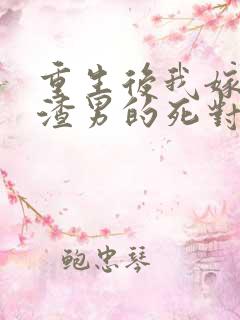 重生後我嫁
渣男的死對
鲍忠琴